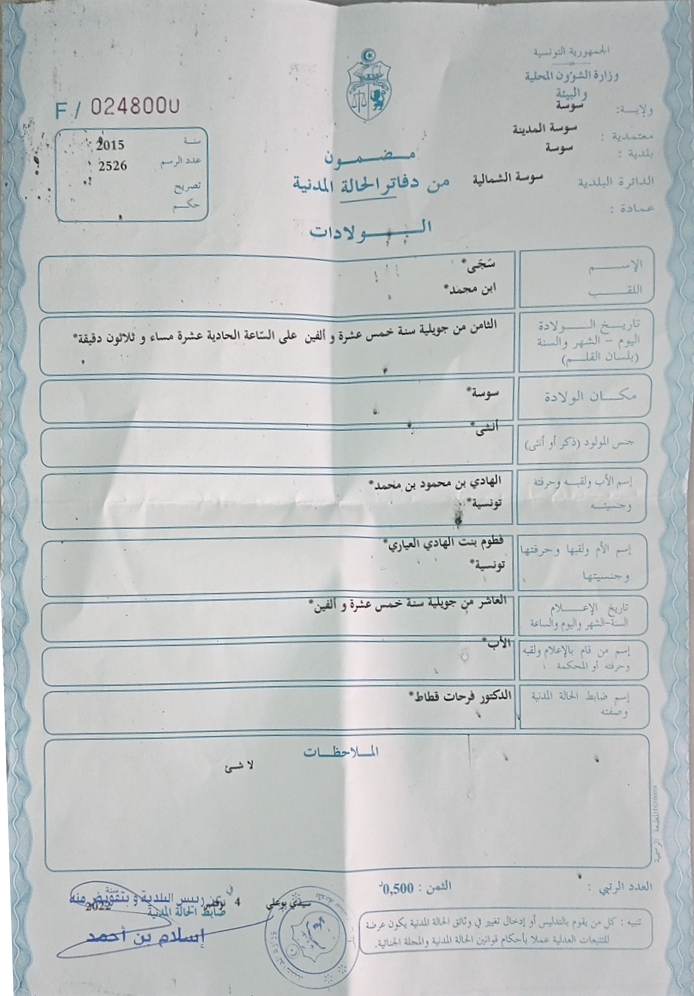 الجمهورية التونسية
وزارة الشؤون المحلية
والبيئة
ولاية: سوسة
معتمدية : سوسة المدينة
بلدية : سوسة
الدائرة البلدية سوسة الشمالية
عمادة :
F / 024800U
سنة 2015
عدد الرسم 2526
تصريح
حكم
مضمون
من دفاتر الحالة المدنية
الولادات
الإسم سَجَى*
اللقب ابن محمد*
تاريخ الولادة
اليوم - الشهر والسنة
(بلسان القلم)
الثامن من جويلية سنة خمس عشرة و ألفين على السّاعة الحادية عشرة مساء و ثلاثون دقيقة*
مكان الولادة سوسة*
جنس المولود (ذكر أو أنثى) أنثى*
إسم الأب ولقبه وحرفته الهادي بن محمود بن محمد*
وجنسيته تونسية*
إسم الأم ولقبها وحرفتها فطوم بنت الهادي العياري*
وجنسيتها تونسية*
تاريخ الإعلام العاشر من جويلية سنة خمس عشرة و ألفين*
السنة-الشهر واليوم والساعة
إسم من قام بالإعلام ولقبه الأب*
وحرفته أو المحكمة
إسم ضابط الحالة المدنية الدكتور فرحات قطاط*
وصفته
الملاحظات
لا شئ
المطبعة الرسمية
العدد الرتبي :
الثمن : 0,500د
سيدي بوعلي في 4 نوفمبر سنة 2022
عن رئيس البلدية و بتفويض منه
ضابط الحالة المدنية
إسلام بن أحمد
تنبيه : كل من يقوم بالتدليس أو إدخال تغيير في وثائق الحالة المدنية يكون عرضة
للتتبعات العدلية عملا بأحكام قوانين الحالة المدنية والمجلة الجنائية.